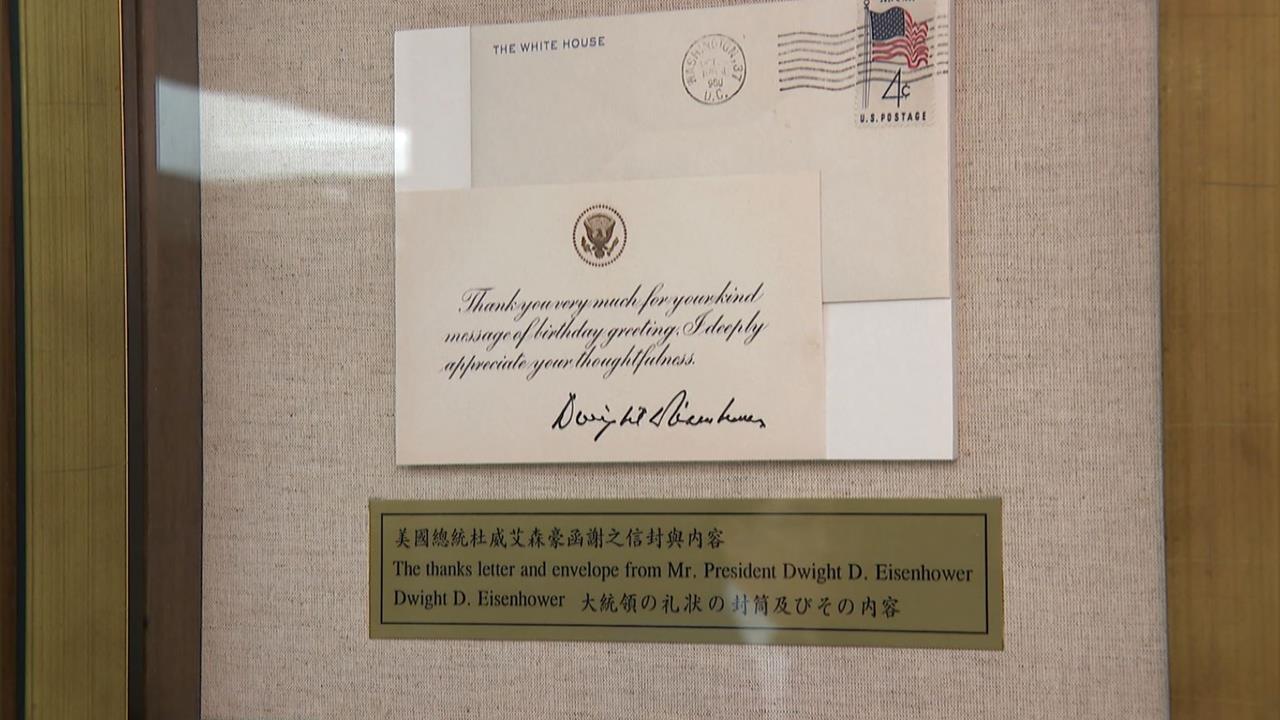 THE WHITE HOUSE
WASHINGTON, 37
D.C.
4¢
U.S. POSTAGE
Thank you very much for your kind
message of birthday greeting. I deeply
appreciate your thoughtfulness.
Dwight D Eisenhower
美國總統杜威艾森豪函謝之信封與內容
The thanks letter and envelope from Mr. President Dwight D. Eisenhower
Dwight D. Eisenhower 大統領の礼状の封筒及びその内容